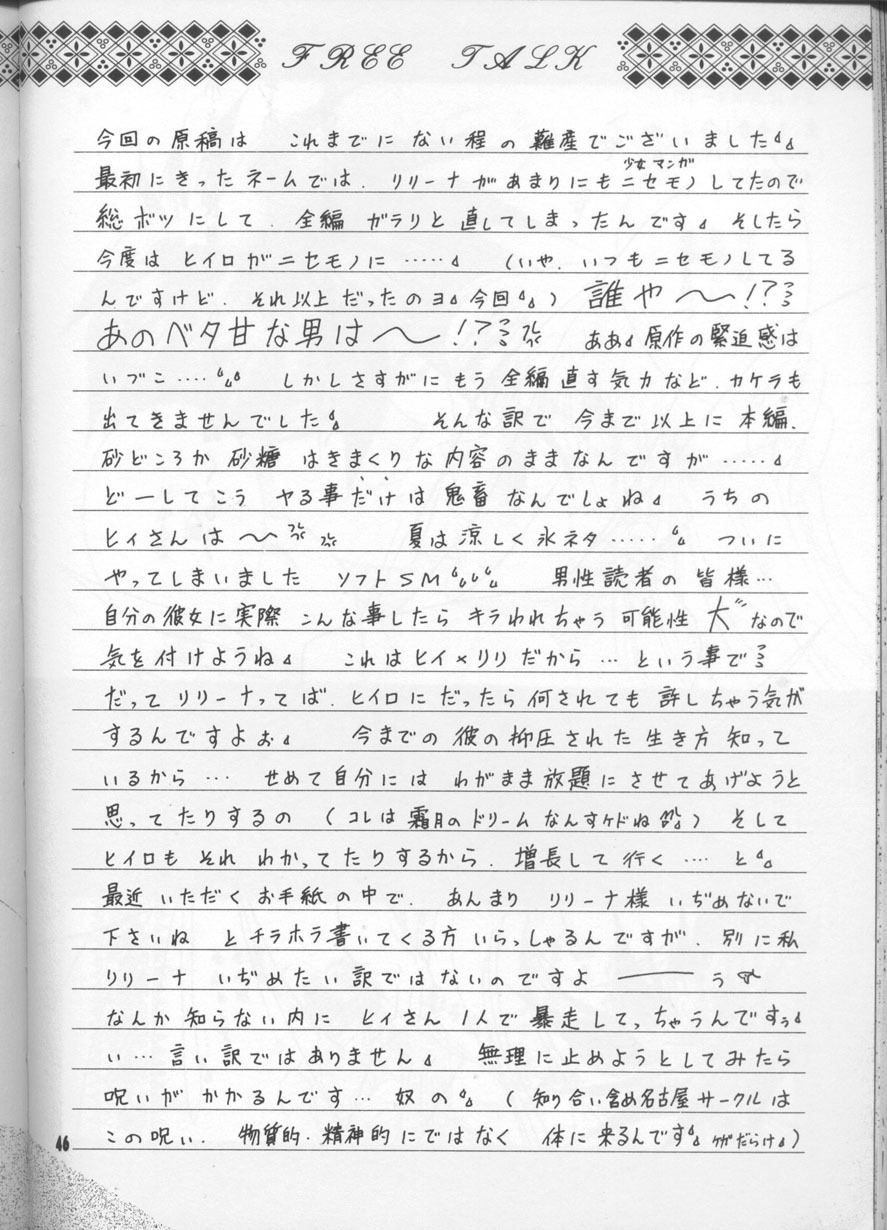 FREE TALK
今回の原稿は これまでに ない程の 難産でございました
少女マンガ
最初にきったネームでは、リリーナがあまりにもニセモノしてたので
総ボツにして、全編 ガラリと直してしまったんです そしたら
今度は ヒイロがニセモノに …… (いや、いつもニセモノしてる
んですけど、それ以上だったのヨ 今回) 誰や〜!?
あのベタ甘な男は〜!? ああ 原作の緊迫感は
いづこ…… しかしさすがにもう 全編直す気力など、カケラも
出てきませんでした そんな訳で 今まで以上に 本編、
砂どころか 砂糖 はきまくりな内容のままなんですが……
どーしてこう ヤる事だけは 鬼畜なんでしょね うちの
ヒイさんは〜 夏は涼しく氷ネタ…… ついに
やってしまいました ソフトSM 男性読者の皆様…
自分の彼女に実際 こんな事したら キラわれちゃう 可能性 大 なので
気を付けようね これはヒイ×リリだから… という事で
だって リリーナってば、ヒイロにだったら何されても 許しちゃう気が
するんですよぉ 今までの 彼の抑圧された 生き方 知って
いるから… せめて自分には わがまま放題にさせてあげようと
思ってたりするの (コレは 霜月のドリームなんすケドね) そして
ヒイロも それ わかってたりするから、増長して行く…… と
最近 いただく お手紙の中で、あんまり リリーナ様 いぢめないで
下さいね とチラホラ書いてくる方 いらっしゃるんですが、別に私
リリーナ いぢめたい訳ではないのですよ ── う
なんか 知らない内に ヒイさん 1人で 暴走してっちゃうんですぅ
い… 言い訳ではありません 無理に止めようとしてみたら
呪いが かかるんです… 奴の (知り合い含め名古屋サークルは
この呪い、物質的・精神的にではなく 体に来るんです ケガだらけ)
46